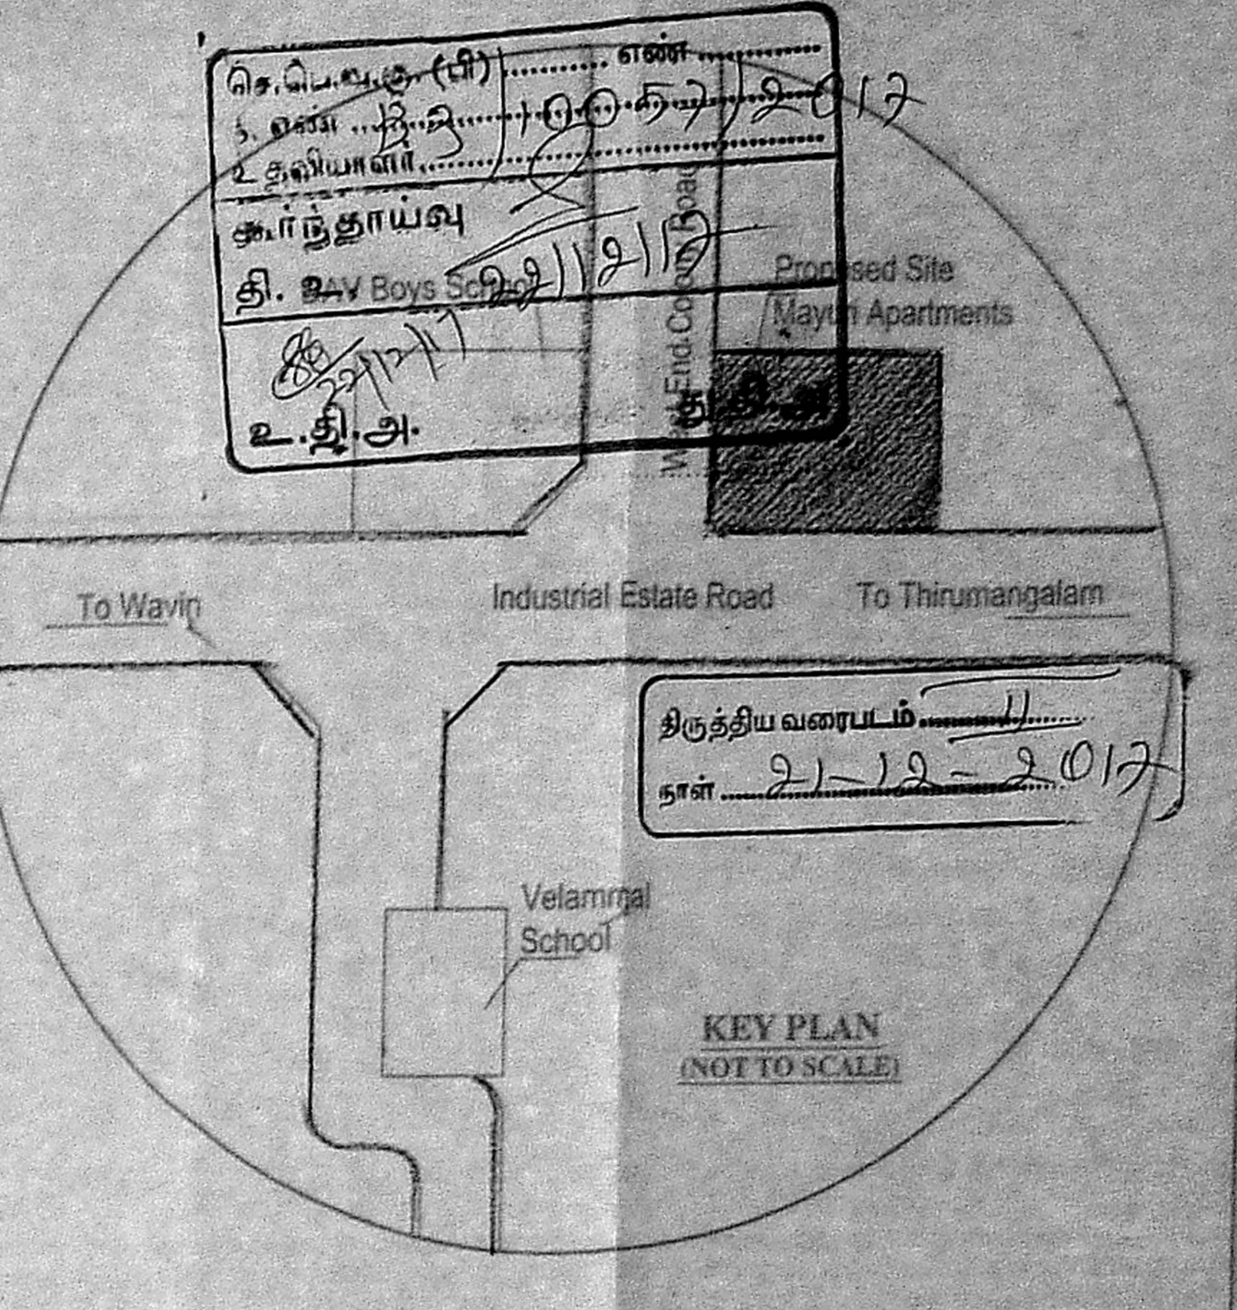 செ.பெ.வ.கு. (பி) ........... எண் ...............
க. எண் ..B3/10057/2017
உதவியாளர்..............................
கூர்ந்தாய்வு
தி. 22/12/17
DAV Boys School
22/12/17
உ.தி.அ.
து.தி.அ
West End Colony Road
Proposed Site
Mayuri Apartments
To Wavin
Industrial Estate Road
To Thirumangalam
திருத்திய வரைபடம்......11......
நாள் ......21-12-2017
Velammal
School
KEY PLAN
(NOT TO SCALE)